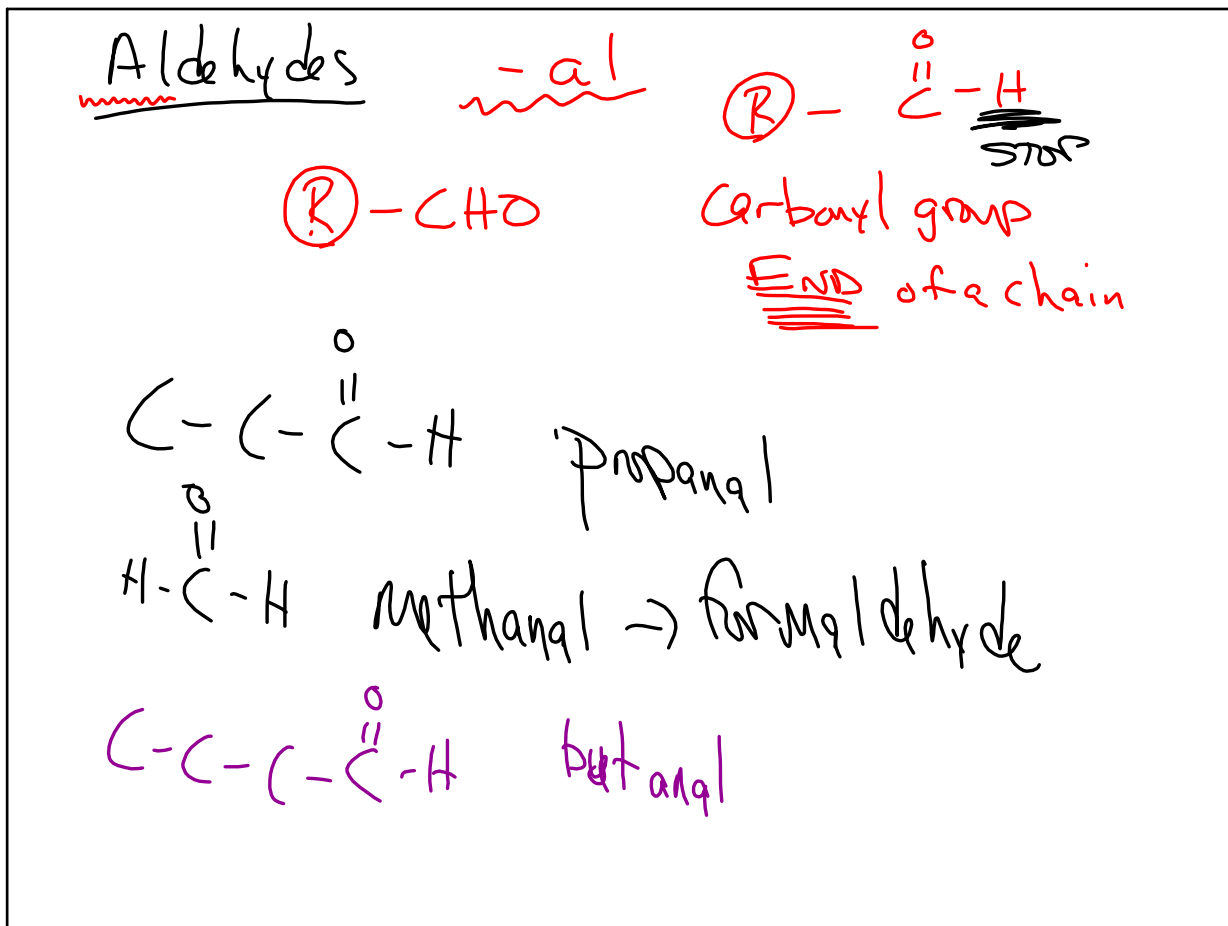 Aldehydes -al
O
||
R - C - H
STOP
R - CHO
Carbonyl group
END of a chain
O
||
C - C - C - H propanal
O
||
H - C - H methanal → formaldehyde
O
||
C - C - C - C - H butanal